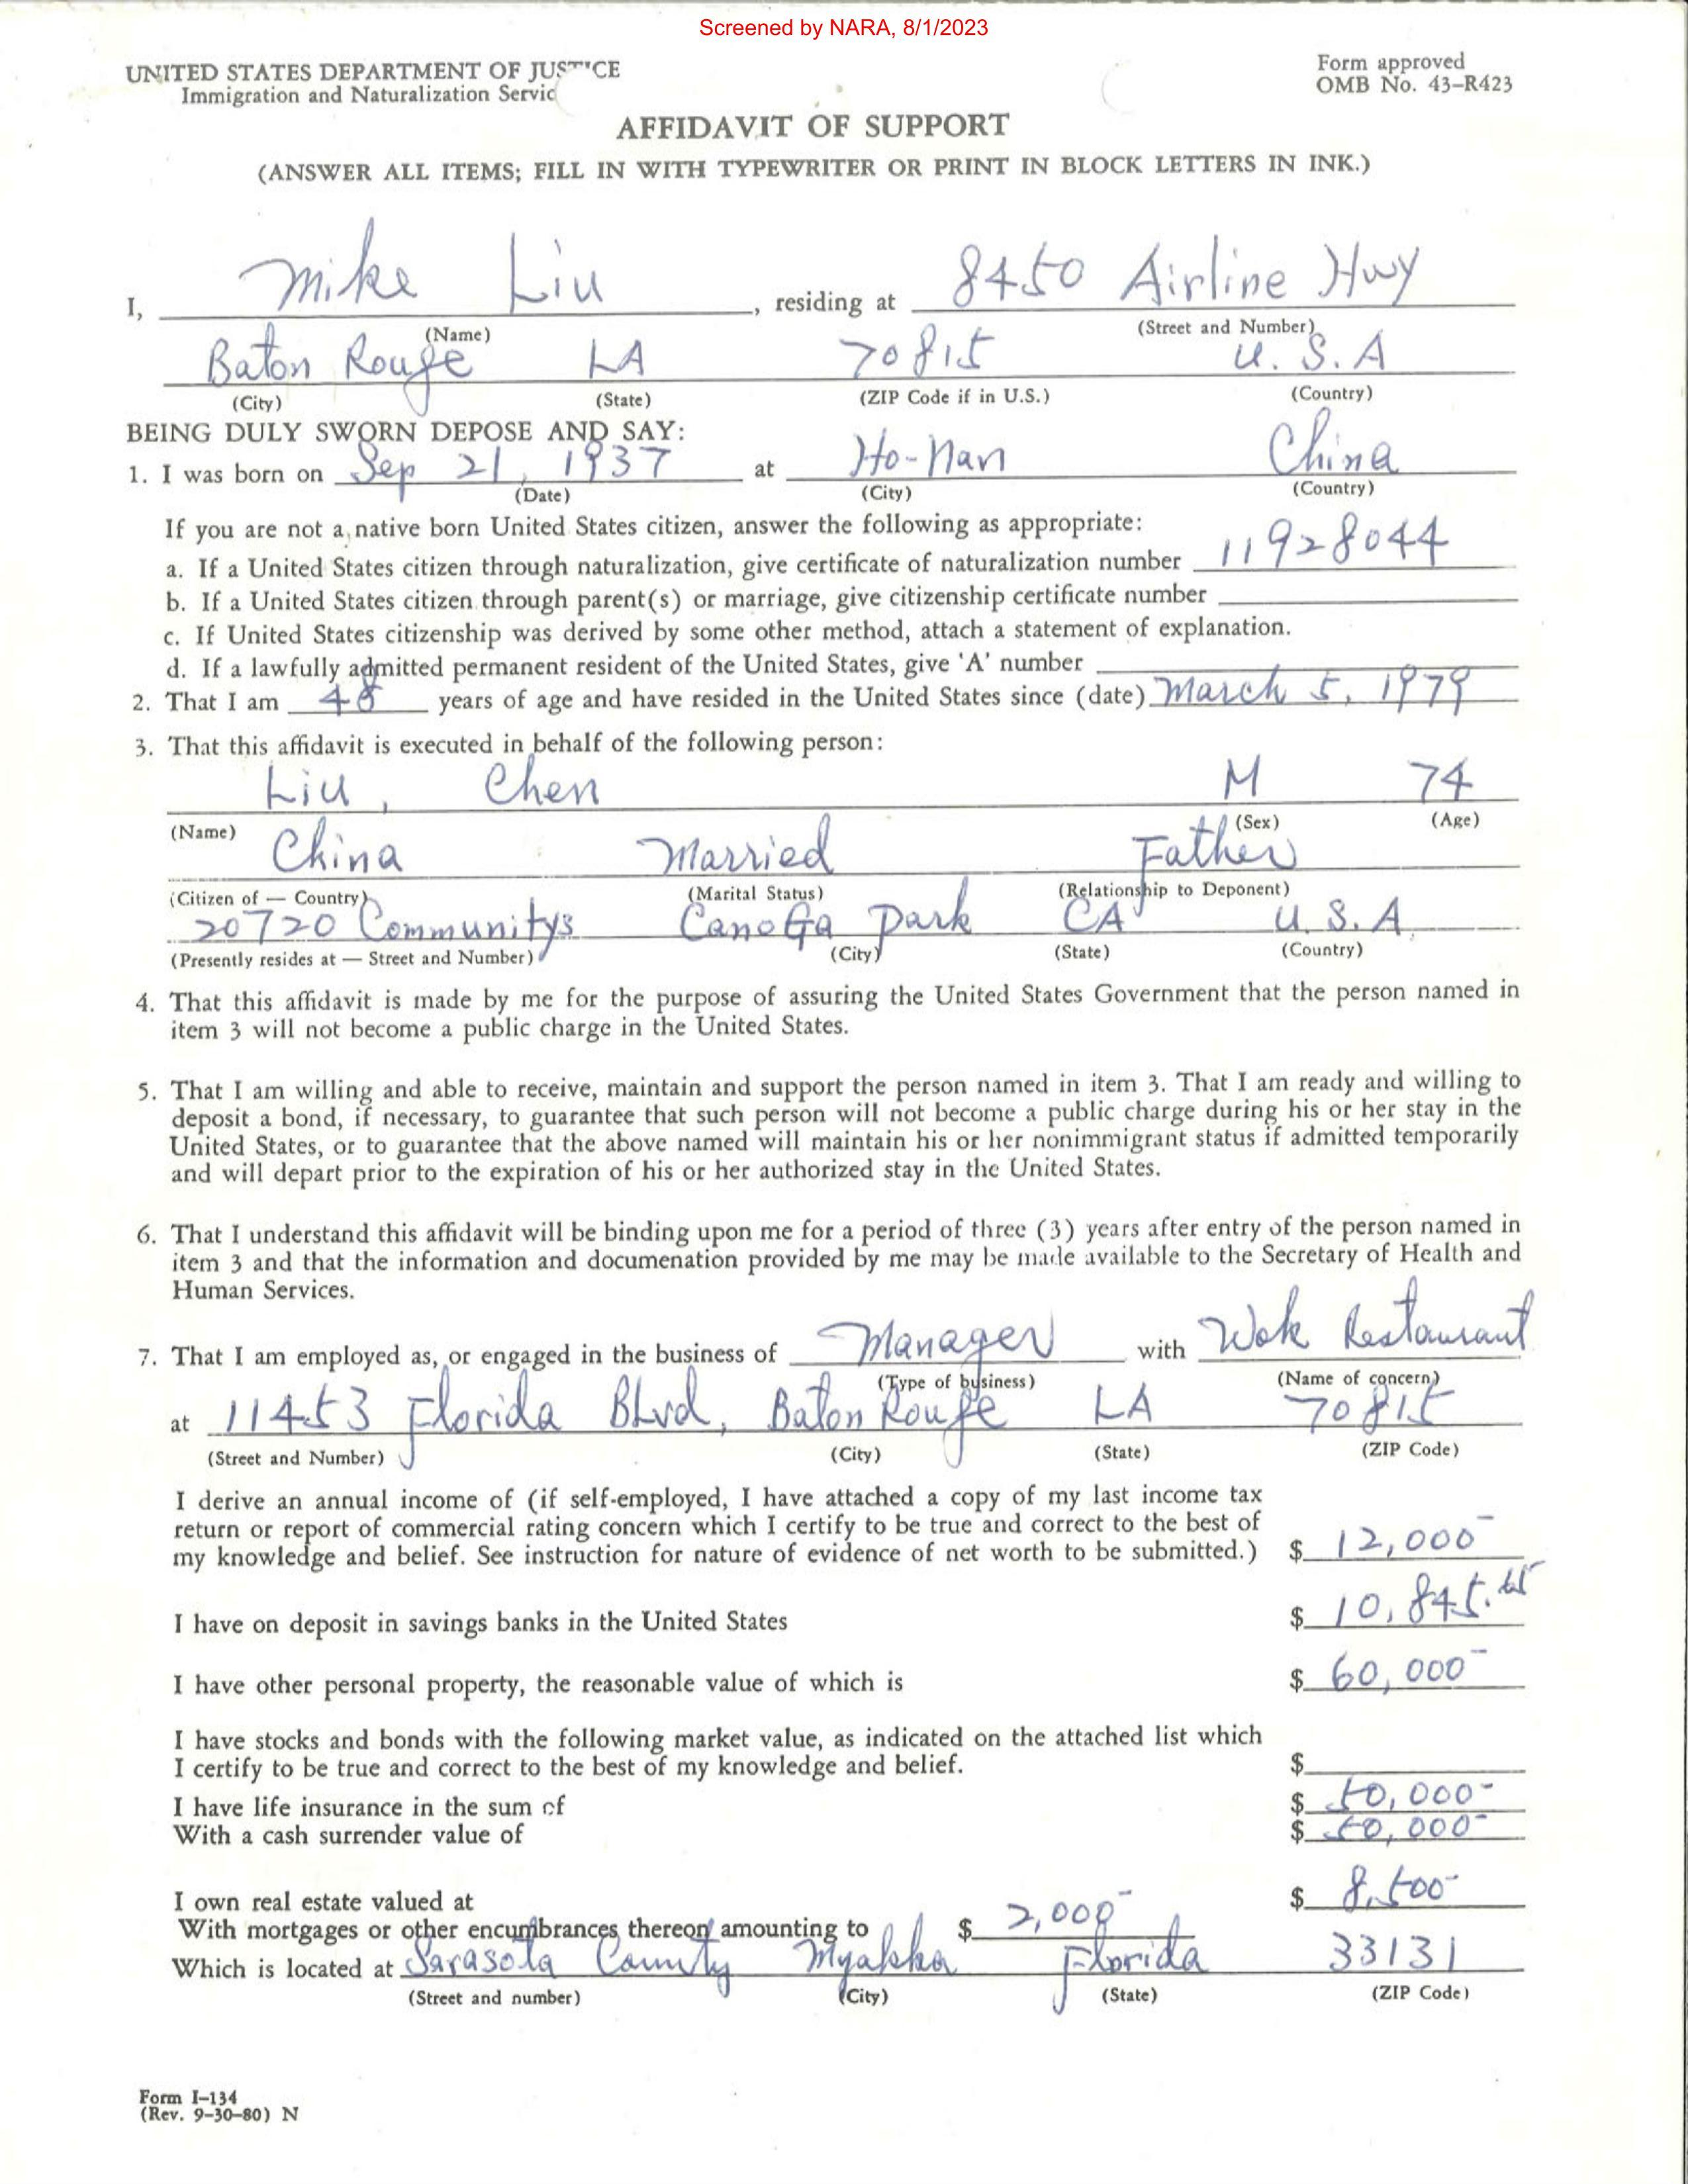 Screened by NARA, 8/1/2023
UNITED STATES DEPARTMENT OF JUSTICE
Form approved
Immigration and Naturalization Servic
OMB No. 43-R423
AFFIDAVIT OF SUPPORT
(ANSWER ALL ITEMS; FILL IN WITH TYPEWRITER OR PRINT IN BLOCK LETTERS IN INK.)
I, Mike Liu, residing at 8450 Airline Hwy
(Name) (Street and Number)
Baton Rouge LA 70815 U.S.A
(City) (State) (ZIP Code if in U.S.) (Country)
BEING DULY SWORN DEPOSE AND SAY:
1. I was born on Sep 21, 1937 at Ho-Nan China
(Date) (City) (Country)
If you are not a native born United States citizen, answer the following as appropriate:
a. If a United States citizen through naturalization, give certificate of naturalization number 11928044
b. If a United States citizen through parent(s) or marriage, give citizenship certificate number
c. If United States citizenship was derived by some other method, attach a statement of explanation.
d. If a lawfully admitted permanent resident of the United States, give 'A' number
2. That I am 48 years of age and have resided in the United States since (date) March 5, 1979
3. That this affidavit is executed in behalf of the following person:
Liu, Chen M 74
(Name) (Sex) (Age)
China Married Father
(Citizen of — Country) (Marital Status) (Relationship to Deponent)
20720 Communitys Canoga Park CA U.S.A.
(Presently resides at — Street and Number) (City) (State) (Country)
4. That this affidavit is made by me for the purpose of assuring the United States Government that the person named in
item 3 will not become a public charge in the United States.
5. That I am willing and able to receive, maintain and support the person named in item 3. That I am ready and willing to
deposit a bond, if necessary, to guarantee that such person will not become a public charge during his or her stay in the
United States, or to guarantee that the above named will maintain his or her nonimmigrant status if admitted temporarily
and will depart prior to the expiration of his or her authorized stay in the United States.
6. That I understand this affidavit will be binding upon me for a period of three (3) years after entry of the person named in
item 3 and that the information and documenation provided by me may be made available to the Secretary of Health and
Human Services.
7. That I am employed as, or engaged in the business of Manager with Wok Restaurant
(Type of business) (Name of concern)
at 11453 Florida BLvd, Baton Rouge LA 70815
(Street and Number) (City) (State) (ZIP Code)
I derive an annual income of (if self-employed, I have attached a copy of my last income tax
return or report of commercial rating concern which I certify to be true and correct to the best of
my knowledge and belief. See instruction for nature of evidence of net worth to be submitted.) $ 12,000-
I have on deposit in savings banks in the United States $ 10,845.
I have other personal property, the reasonable value of which is $ 60,000-
I have stocks and bonds with the following market value, as indicated on the attached list which
I certify to be true and correct to the best of my knowledge and belief. $
I have life insurance in the sum of $ 50,000-
With a cash surrender value of $ 50,000-
I own real estate valued at $ 8,500-
With mortgages or other encumbrances thereon amounting to $ 2,000-
Which is located at Sarasota County Myakka Florida 33131
(Street and number) (City) (State) (ZIP Code)
Form I-134
(Rev. 9-30-80) N